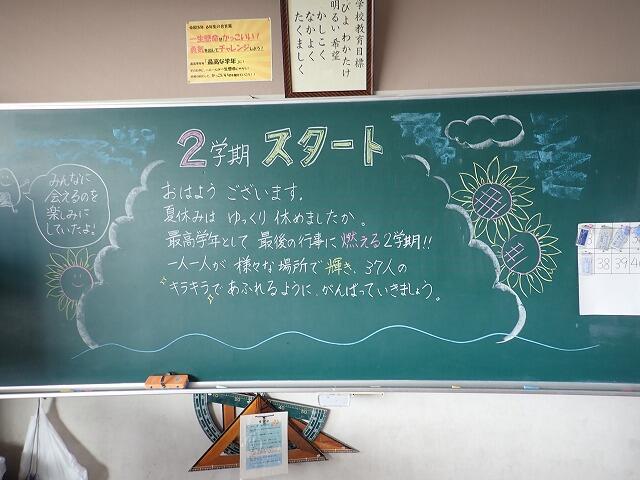 一生懸命がかっこいい!
勇気を出してチャレンジしよう!
「最高な学年」に!
学校教育目標
のびよ わかたけ
明るい 希望
かしこく
なかよく
たくましく
2学期 スタート
みんなに
会えるのを
楽しみに
していたよ!
おはよう ございます。
夏休みは ゆっくり 休めましたか。
最高学年として 最後の行事に 燃える2学期!!
一人一人が 様々な場所で 輝き、37人の
キラキラで あふれるように、がんばっていきましょう。
38 39